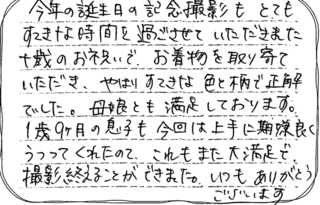 今年の誕生日の記念撮影も とても
すてきな時間を過ごさせていただきました
十歳のお祝いで、お着物を取り寄せて
いただき、やはりすてきな色と柄で正解
でした。母娘とも満足しております。
1歳9ヶ月の息子も今回は上手に期嫌良く
うつってくれたので、これもまた大満足で、
撮影終えることができました。いつもありがとう
ございます